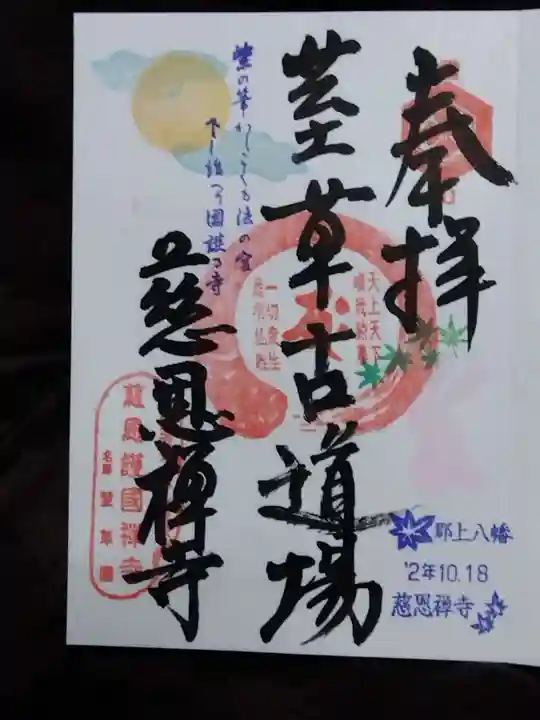 奉拝
荎草古道場
慈恩禅寺
紫の筆かしこくも法の室
下し往つる国護る寺
天上天下
唯我独尊
一切衆生
悉有仏性
慈恩護國禅寺
名庭 荎草園
郡上八幡
'2年10.18
慈恩禅寺